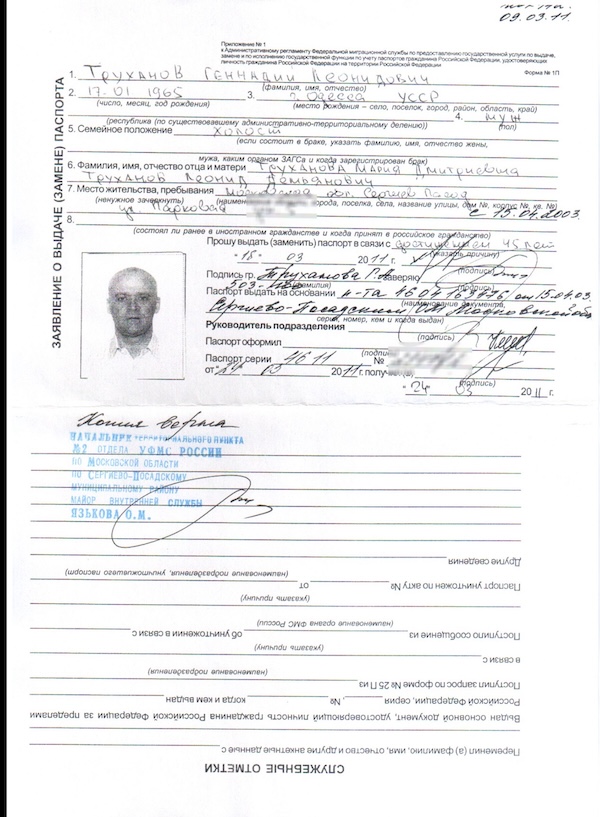 09.03.11.
Приложение № 1
к Административному регламенту Федеральной миграционной службы по предоставлению государственной услуги по выдаче,
замене и по исполнению государственной функции по учету паспортов гражданина Российской Федерации, удостоверяющих
личность гражданина Российской Федерации на территории Российской Федерации
Форма № 1П
ЗАЯВЛЕНИЕ О ВЫДАЧЕ (ЗАМЕНЕ) ПАСПОРТА
1. Труханов Геннадий Леонидович
(фамилия, имя, отчество)
2. 17.01 1965 3. г. Одесса УССР
(число, месяц, год рождения) (место рождения – село, поселок, город, район, область, край)
4. муж
(республики (по существовавшему административно-территориальному делению)) (пол)
5. Семейное положение холост
(если состоит в браке, указать фамилию, имя, отчество жены,
мужа, каким органом ЗАГСа и когда зарегистрирован брак)
6. Фамилия, имя, отчество отца и матери Труханова Мария Дмитриевна
Труханов Леонид Демьянович
7. Место жительства, пребывания Московская обл. Сергиев Посад
(ненужное зачеркнуть) города, поселка, села, название улицы, дом №, корпус №, кв. №)
ул Парковая с 15.04.2003
8.
(состоял ли ранее в иностранном гражданстве и когда принят в российское гражданство)
Прошу выдать (заменить) паспорт в связи с достижением 45 лет
(указать причину)
"18" 03 2011 г.
(подпись)
Подпись гр. Труханова Г.Л. заверяю
(подпись)
503-
Паспорт выдать на основании п-та 46 04 от 15.04.03.
(наименование документа,
Сергиево-Посадским ОМ Московской обл
серия, номер, кем и когда выдан)
Руководитель подразделения
(подпись)
Паспорт оформил
(подпись)
Паспорт серии 46 11 №
от "24" 03 2011 г. получил(а)
(подпись)
"24" 03 2011 г.
Копия верна
НАЧАЛЬНИК ТЕРРИТОРИАЛЬНОГО ПУНКТА
№2 ОТДЕЛА УФМС РОССИИ
ПО МОСКОВСКОЙ ОБЛАСТИ
ПО СЕРГИЕВО-ПОСАДСКОМУ
МУНИЦИПАЛЬНОМУ РАЙОНУ
МАЙОР ВНУТРЕННЕЙ СЛУЖБЫ
ЯЗЬКОВА О.М.
СЛУЖЕБНЫЕ ОТМЕТКИ
Переменил (а) фамилию, имя, отчество и другие анкетные данные с
Выдан основной документ, удостоверяющий личность гражданина Российской Федерации за пределами
Российской Федерации, серия , № когда и кем выдан
Поступил запрос по форме № 25 П из
(наименование подразделения)
в связи с
(указать причину)
Поступило сообщение из об уничтожении в связи с
(наименование органа ФМС России)
(указать причину)
Паспорт уничтожен по акту № от
(наименование подразделения, уничтожившего паспорт)
Другие сведения